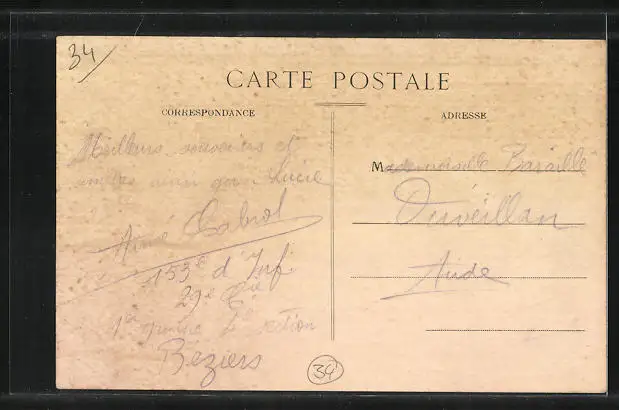 34
CARTE POSTALE
CORRESPONDANCE
ADRESSE
Meilleurs souvenirs et
Lucie
Aimé Cabrol
153e d'Inf.
29e Cie
1er section
Béziers
Mademoiselle Baraillé
Ouveillan
Aude
34